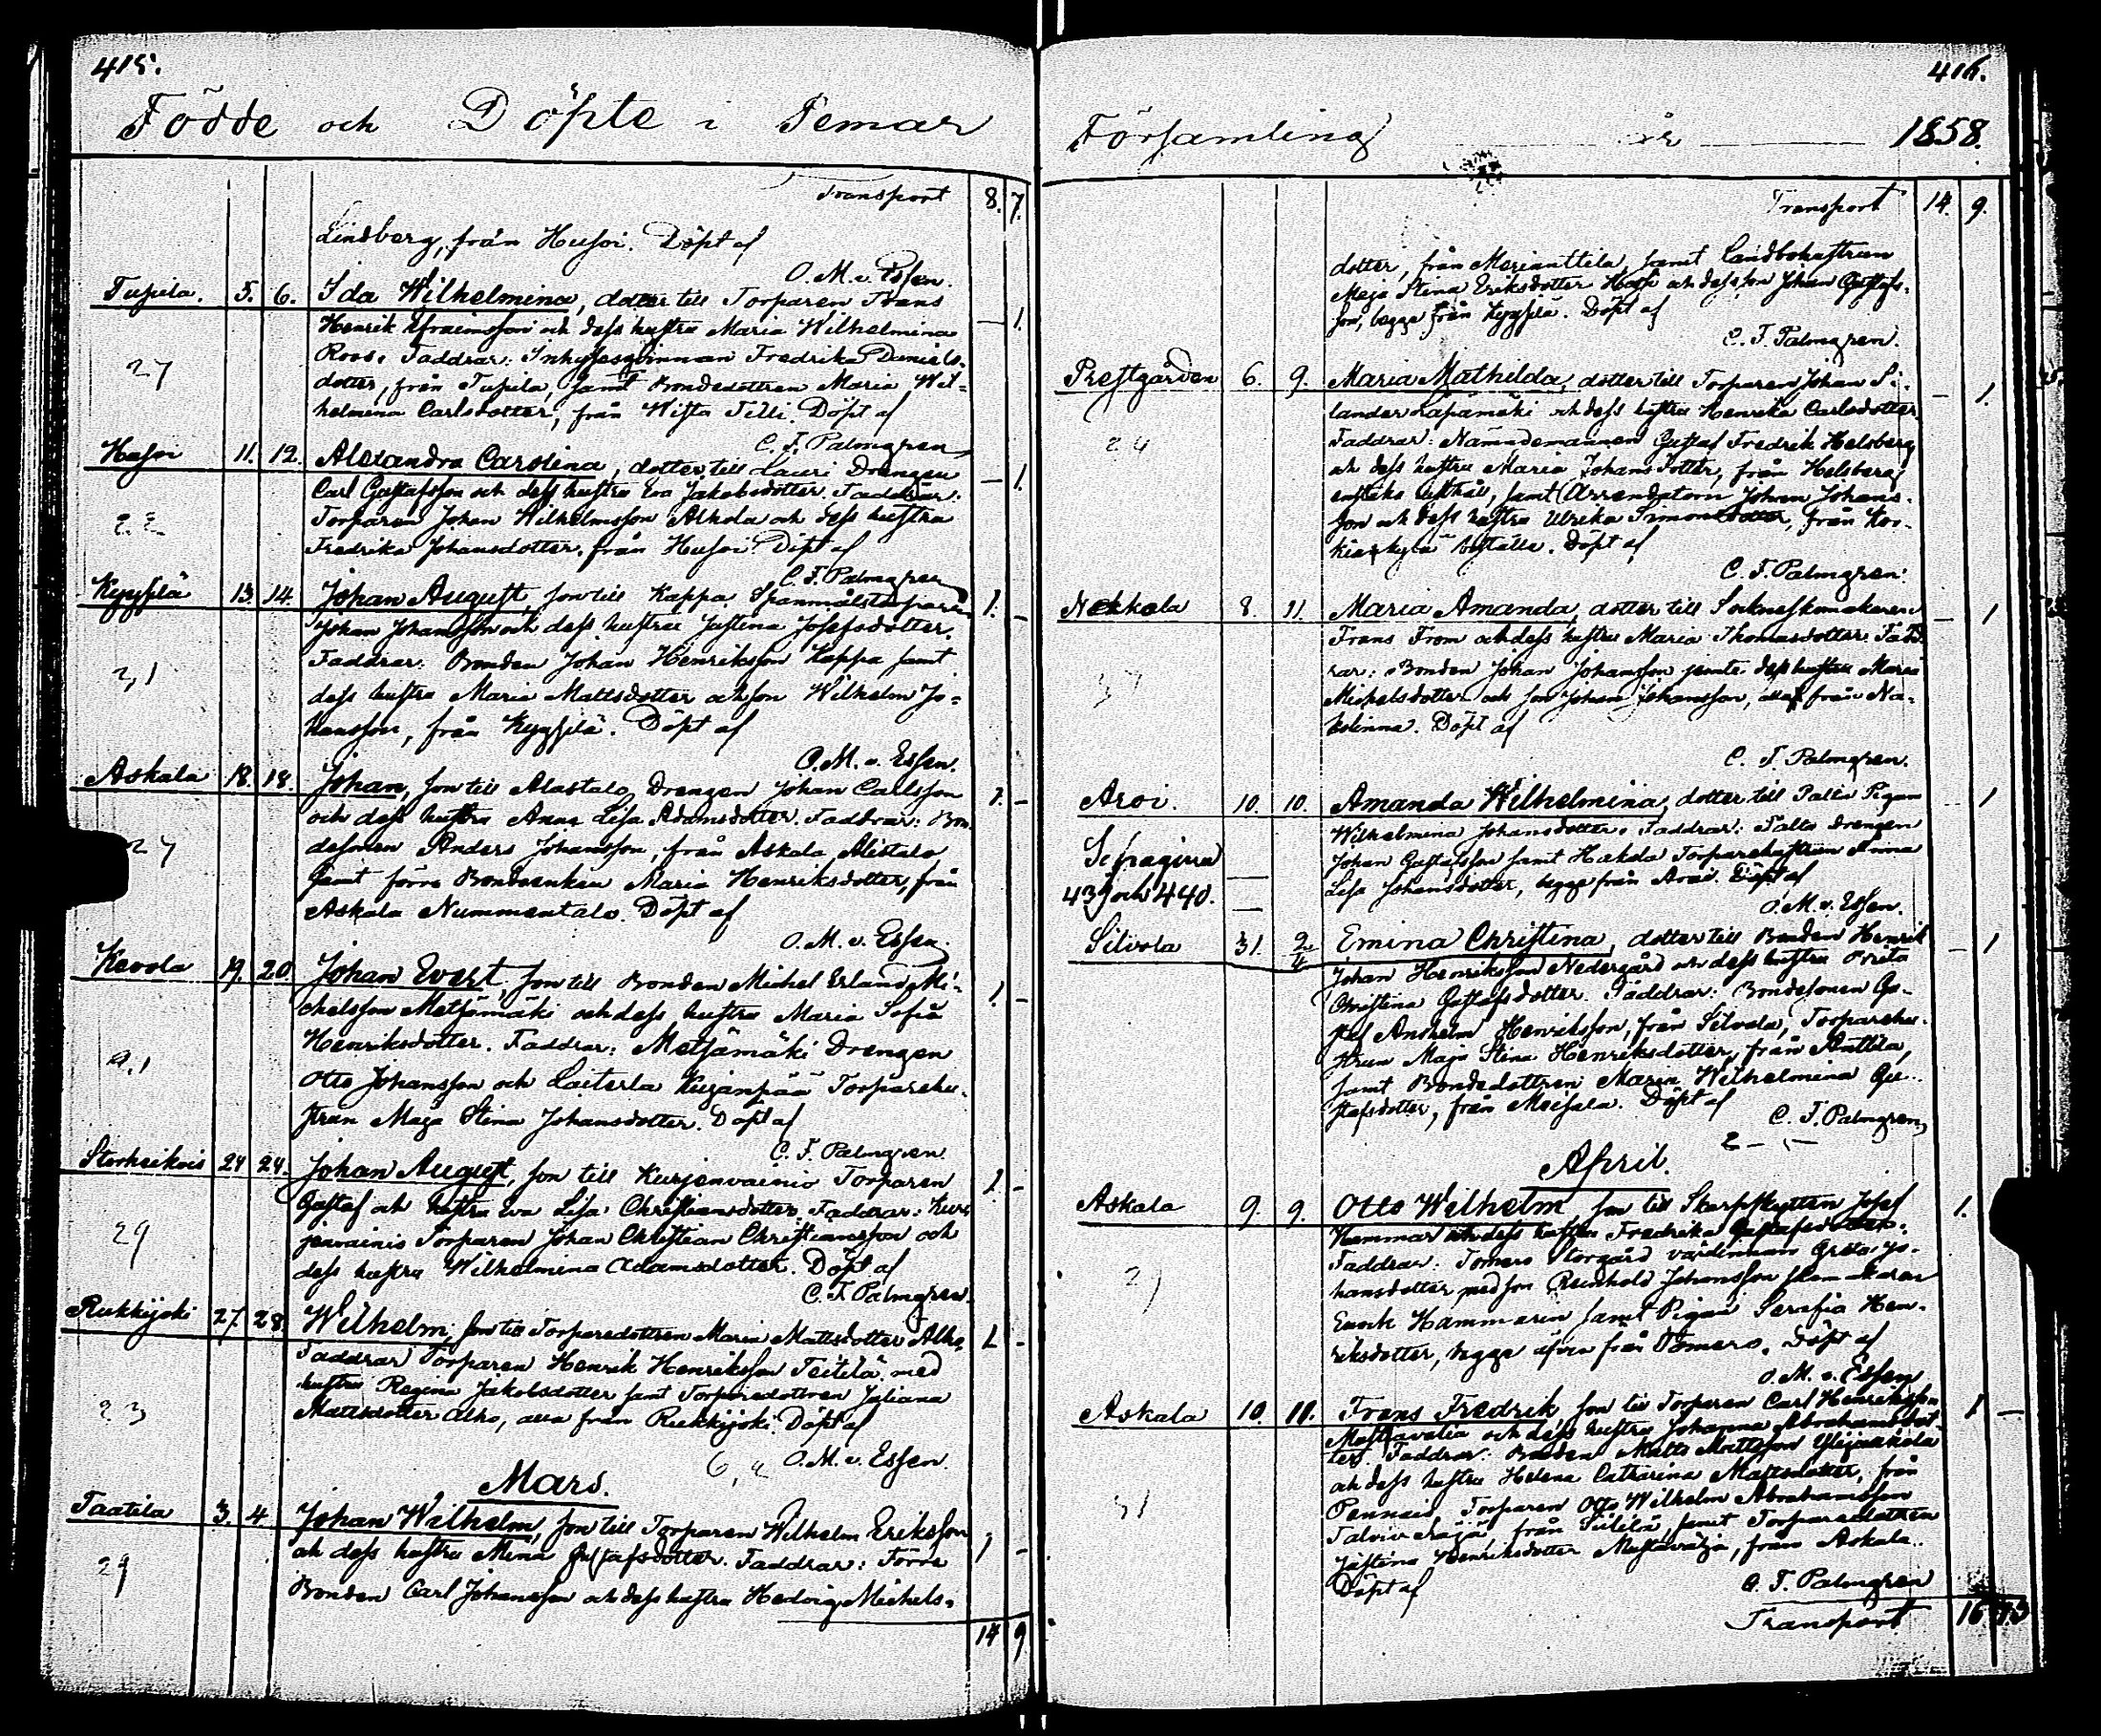 415.
Födde och Döpte i Pemar
Transport 8. 7.
Lindberg, från Husoi. Döpt af
O. M. v. Essen.
Tupila. 5. 6. Ida Wilhelmina, dotter till Torparen Frans
Henrik Efraimsson och dess hustru Maria Wilhelmina — 1.
Roos. Faddrar: Inhysesqvinnan Fredrika Daniels-
27
dotter, från Tupila, samt Bondedottren Maria Wil-
helmina Carlsdotter, från Wista Tilli. Döpt af
C. F. Palmgren
Husoi 11. 12. Alexandra Carolina, dotter till Lauri Drengen
Carl Gustafsson och dess hustru Eva Jakobsdotter. Faddrar: — 1.
22
Torparen Johan Wilhelmsson Alhola och dess hustru
Fredrika Johansdotter, från Husoi. Döpt af
C. F. Palmgren
Kyysilä 13. 14. Johan August, son till Kappa Spanmålstorparen 1. —
Johan Johansson och dess hustru Justina Josefsdotter.
Faddrar: Bonden Johan Henriksson Kappa samt
31
dess hustru Maria Mattsdotter och son Wilhelm Jo-
hansson, från Kyysilä. Döpt af
O. M. v. Essen.
Askala 18. 18. Johan, son till Alastalo Drengen Johan Carlsson 1. —
och dess hustru Anna Lisa Adamsdotter. Faddrar: Bon-
27
desonen Anders Johansson, från Askala Alistalo
samt förre Bondeenkan Maria Henriksdotter, från
Askala Nummentalo. Döpt af
O. M. v. Essen.
Kevola 19. 20 Johan Evert, son till Bonden Michel Erland Mi- 1. —
chelsson Metsämäki och dess hustru Maria Sofia
Henriksdotter. Faddrar: Metsämäki Drengen
Otto Johansson och Laiterla Kujanpää Torparehu-
strun Maja Stina Johansdotter. Döpt af
C. F. Palmgren.
Storheikois 24 24. Johan August, son till Kurjenvainio Torparen 1 —
Gustaf och hustru Eva Lisa Christiansdotter. Faddrar: Kur-
29
jenvainio Torparen Johan Christian Christiansson och
dess hustru Wilhelmina Adamsdotter. Döpt af
C. F. Palmgren.
Rukkijoki 27. 28. Wilhelm, son till Torparedottren Maria Mattsdotter Alho, 1. —
Faddrar Torparen Henrik Henriksson Teitilä med
hustru Regina Jakobsdotter samt Torparedottren Juliana
23
Mattsdotter Alho, alla från Rukkijoki. Döpt af
O. M. v. Essen.
Mars.
Taatila 3. 4. Johan Wilhelm, son till Torparen Wilhelm Eriksson
och dess hustru Mina Gustafsdotter. Faddrar: Förre 1 —
29
Bonden Carl Johansson och dess hustru Hedvig Michels-
14 9.
416.
Församling år 1858.
Transport 14. 9.
dotter, från Marianttila, samt Landbohustrun
Maja Stina Eriksdotter och dess son Johan Gustafs-
son, begge från Kyysilä. Döpt af
C. F. Palmgren.
Prestgården 6. 9. Maria Mathilda, dotter till Torparen Johan Si- — 1.
lander Lapamäki och dess hustru Henrika Carlsdotter
24
Faddrar: Nämndemannen Gustaf Fredrik Helsberg
och dess hustru Maria Johansdotter, från Helsberg
samt Arrendatorn Johan Johans-
son och dess hustru Ulrika Simonsdotter, från Kor-
C. F. Palmgren.
Nekkala 8. 11. Maria Amanda, dotter till Sockneskomakaren — 1
Frans From och dess hustru Maria Thomasdotter. Fadd-
rar: Bonden Johan Johansson jemte dess hustru Maria
Michelsdotter och son Johan Johansson, alla från Na-
kolinna. Döpt af
C. F. Palmgren.
Aroi. 10. 10. Amanda Wilhelmina, dotter till Palto Pigan — 1
Wilhelmina Johansdotter. Faddrar: Palto Drengen
Johan Gustafsson samt Hakala Torparehustrun Anna
Lisa Johansdotter, begge från Aroi. Döpt af
Se pagina —
439 och 440. —
O. M. v. Essen.
Silvola 31. 2/4 Emina Christina, dotter till Bonden Henrik — 1
Johan Henriksson Nedergård och dess hustru Greta
Christina Gustafsdotter. Faddrar: Bondesonen Gu-
staf Anshelm Henriksson, från Silvola, Torparehu-
strun Maja Stina Henriksdotter, från Anttila,
samt Bondedottren Maria Wilhelmina Gu-
stafsdotter, från Meisala. Döpt af
C. F. Palmgren,
April.
Askala 9. 9. Otto Wilhelm, son till Skarpskytten Josef 1.
Hammar och dess hustru Fredrika Gustafsdotter.
Faddrar: Tomero Storgård värdinnan Greta Jo-
hansdotter med son Reinhold Johansson
Enock Hammarin samt Pigan Serafia Hen-
riksdotter, begge äfven från Tomero. Döpt af
O. M. v. Essen
Askala 10. 11. Frans Fredrik, son till Torparen Carl Henriksson 1 —
Mustavalia och dess hustru Johanna Abrahamsdot-
ter. Faddrar: Bonden Matts Mattsson Ylijaakola
och dess hustru Helena Catharina Mattsdotter, från
31
Torparen Otto Wilhelm Abrahamsson
från samt Torparedottren
Justina Henriksdotter från Askala.
Döpt af
C. F. Palmgren
Transport 16 13